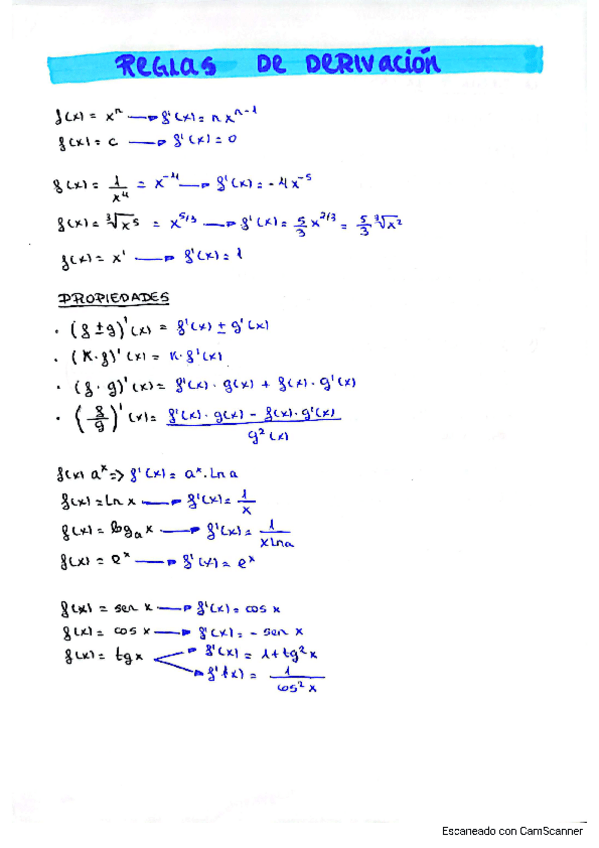 REGLAS DE DERIVACIÓN
f(x) = xⁿ → f'(x) = n xⁿ⁻¹
f(x) = c → f'(x) = 0
f(x) = 1/x⁴ = x⁻⁴ → f'(x) = -4x⁻⁵
f(x) = ³√x⁵ = x^5/3 → f'(x) = 5/3 x^2/3 = 5/3 ³√x²
f(x) = x¹ → f'(x) = 1
PROPIEDADES
· (f ± g)'(x) = f'(x) ± g'(x)
· (K · f)'(x) = K · f'(x)
· (f · g)'(x) = f'(x) · g(x) + f(x) · g'(x)
· (f/g)'(x) = f'(x) · g(x) - f(x) · g'(x) / g²(x)
f(x) aˣ => f'(x) = aˣ · Ln a
f(x) = Ln x → f'(x) = 1/x
f(x) = logₐ x → f'(x) = 1/x Ln a
f(x) = eˣ → f'(x) = eˣ
f(x) = sen x → f'(x) = cos x
f(x) = cos x → f'(x) = - sen x
f(x) = tg x → f'(x) = 1 + tg² x
→ f'(x) = 1/cos² x
Escaneado con CamScanner